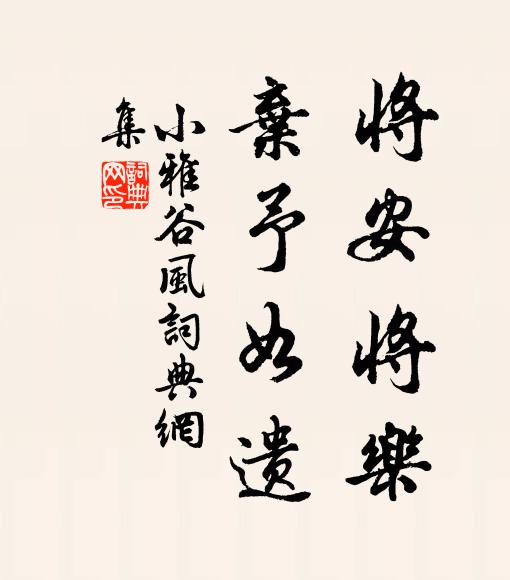 將安將樂
棄予如遺
小雅谷風詞典網
集
詞典
网印